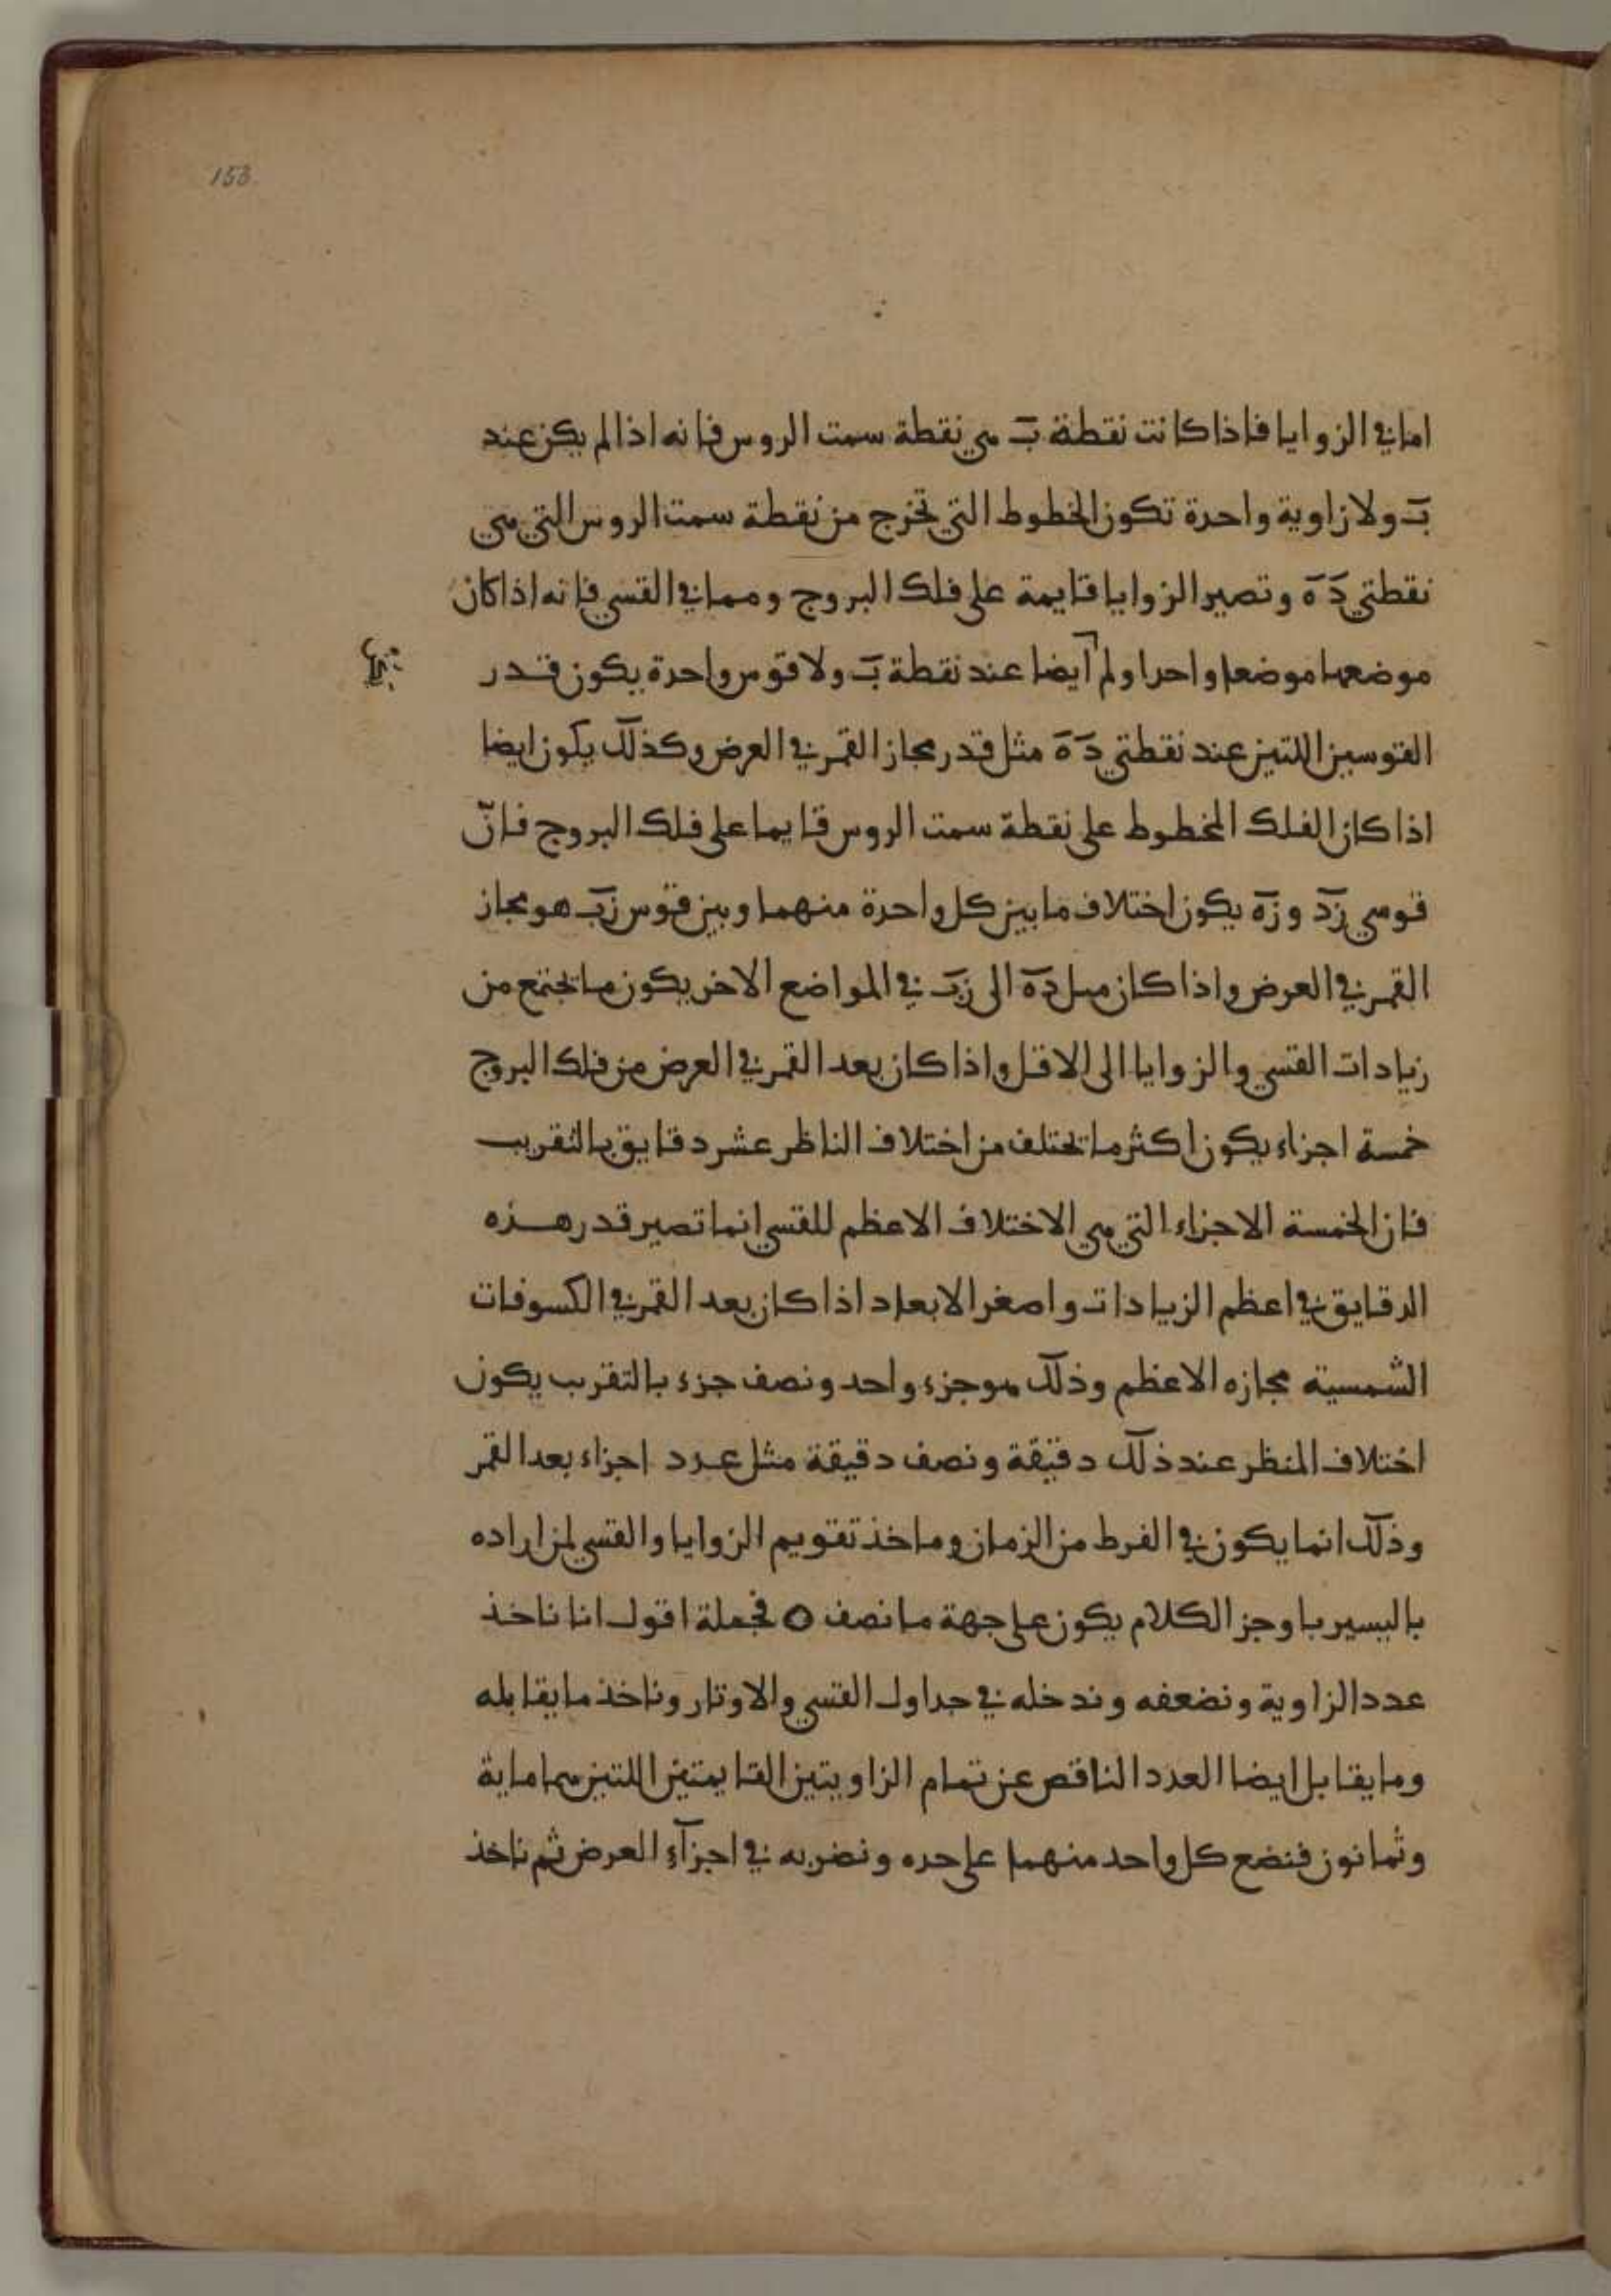 153
اما في الزوايا فاذا كانت نقطة ب هي نقطة سمت الروس فانه اذا لم يكن عند
ب ولا زاوية واحدة تكون الخطوط التي تخرج من نقطة سمت الروس التي هي
نقطتي د ه وتصير الزوايا قايمة على فلك البروج ومما في القسي فانه اذا كان
موضعهما موضعا واحدا ولم ايضا عند نقطة ب ولا قوس واحدة يكون قدر
القوسين اللتين عند نقطتي د ه مثل قدر مجاز القمر في العرض وكذلك يكون ايضا
اذا كان الفلك المخطوط على نقطة سمت الروس قايما على فلك البروج فانّ
قوسي زد وزه يكون اختلاف ما بين كل واحدة منهما وبين قوس زب هو مجاز
القمر في العرض واذا كان ميل ده الى زب في المواضع الاخر يكون ما تجتمع من
زيادات القسي والزوايا الى الاقل واذا كان بعد القمر في العرض من فلك البروج
خمسة اجزاء يكون اكثر ما تختلف من اختلاف الناظر عشر دقايق بالتقريب
فان الخمسة الاجزاء التي هي الاختلاف الاعظم للقسي انما تصير قدر هذه
الدقايق في اعظم الزيادات واصغر الابعاد اذا كان بعد القمر في الكسوفات
الشمسية مجازه الاعظم وذلك هو جزء واحد ونصف جزء بالتقرب يكون
اختلاف المنظر عند ذلك دقيقة ونصف دقيقة مثل عدد اجزاء بعد القمر
وذلك انما يكون في الفرط من الزمان وماخذ تقويم الزوايا والقسي لمن اراده
باليسير باوجز الكلام يكون على جهة ما نصف ٥ فجملة اقول انا ناخذ
عدد الزاوية ونضعفه وندخله في جداول القسي والاوتار وناخذ ما يقابله
وما يقابل ايضا العدد الناقص عن تمام الزاويتين القايمتين اللتين هما ماية
وثمانون فنضع كل واحد منهما على حده ونضربه في اجزآء العرض ثم ناخذ